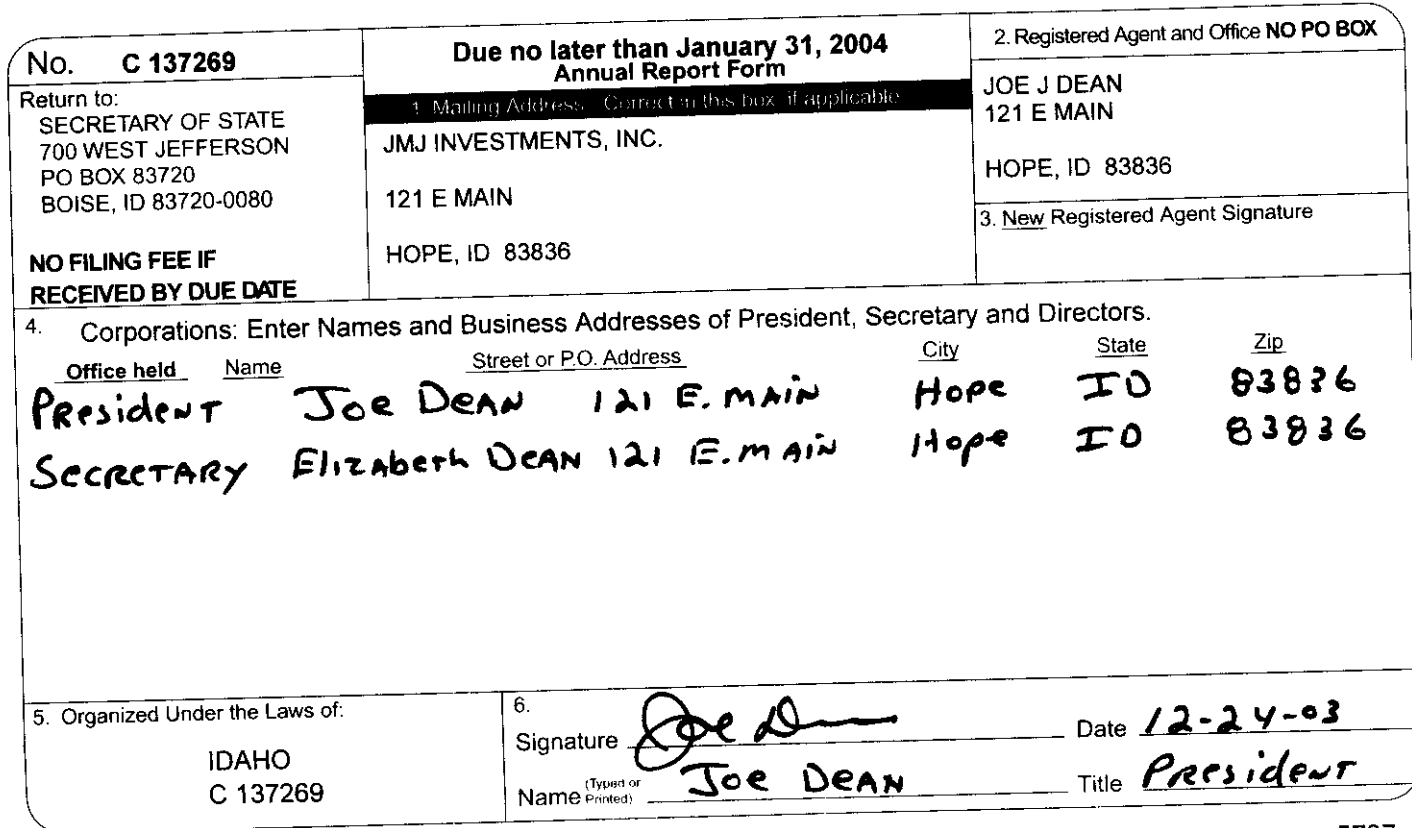 No. C 137269
Return to:
SECRETARY OF STATE
700 WEST JEFFERSON
PO BOX 83720
BOISE, ID 83720-0080
NO FILING FEE IF
RECEIVED BY DUE DATE
Due no later than January 31, 2004
Annual Report Form
1. Mailing Address: Correct in this box, if applicable
JMJ INVESTMENTS, INC.
121 E MAIN
HOPE, ID 83836
2. Registered Agent and Office NO PO BOX
JOE J DEAN
121 E MAIN
HOPE, ID 83836
3. New Registered Agent Signature
4. Corporations: Enter Names and Business Addresses of President, Secretary and Directors.
Office held Name Street or P.O. Address City State Zip
President Joe Dean 121 E. Main Hope ID 83836
Secretary Elizabeth Dean 121 E. Main Hope ID 83836
5. Organized Under the Laws of:
IDAHO
C 137269
6.
Signature Joe D Date 12-24-03
Name (Typed or Printed) Joe Dean Title President